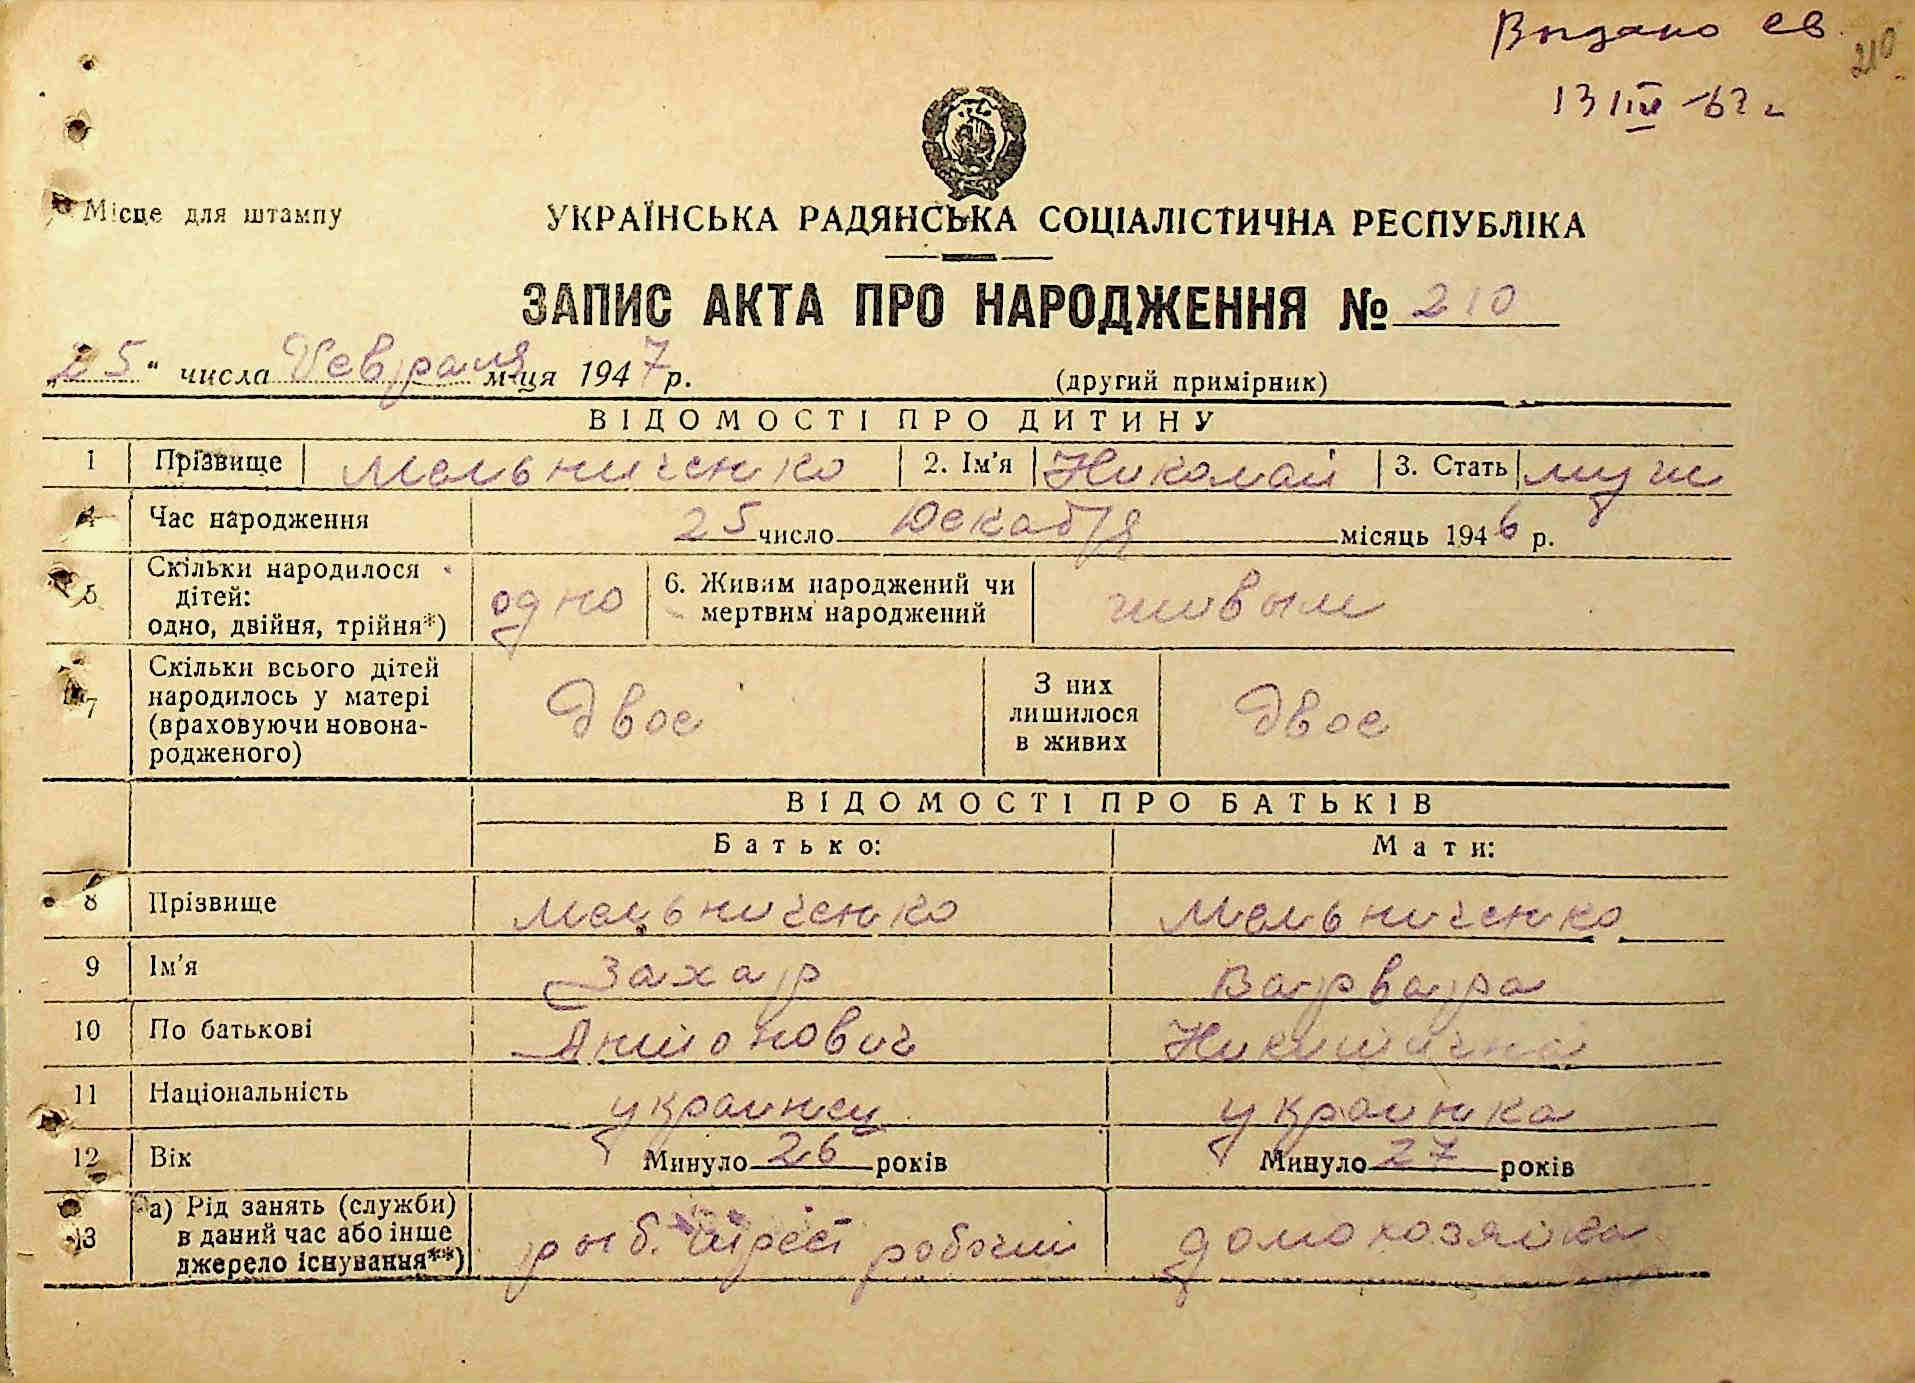 Выдано св.
210
13 IV -62 г
Місце для штампу
УКРАЇНСЬКА РАДЯНСЬКА СОЦІАЛІСТИЧНА РЕСПУБЛІКА
ЗАПИС АКТА ПРО НАРОДЖЕННЯ № 210
„25" числа Февраля м-ця 1947 р. (другий примірник)
ВІДОМОСТІ ПРО ДИТИНУ
1 Прізвище Мельниченко 2. Ім'я Николай 3. Стать муж
4 Час народження 25 число Декабря місяць 1946 р.
5 Скільки народилося дітей: одно, двійня, трійня*) одно 6. Живим народжений чи мертвим народжений живым
7 Скільки всього дітей народилось у матері (враховуючи новонародженого) Двое З них лишилося в живих Двое
ВІДОМОСТІ ПРО БАТЬКІВ
Батько: Мати:
8 Прізвище Мельниченко Мельниченко
9 Ім'я Захар Варвара
10 По батькові Антонович Никитична
11 Національність украинец украинка
12 Вік Минуло 26 років Минуло 27 років
13 а) Рід занять (служби) в даний час або інше джерело існування**) рыб. трест рабочий домохозяйка